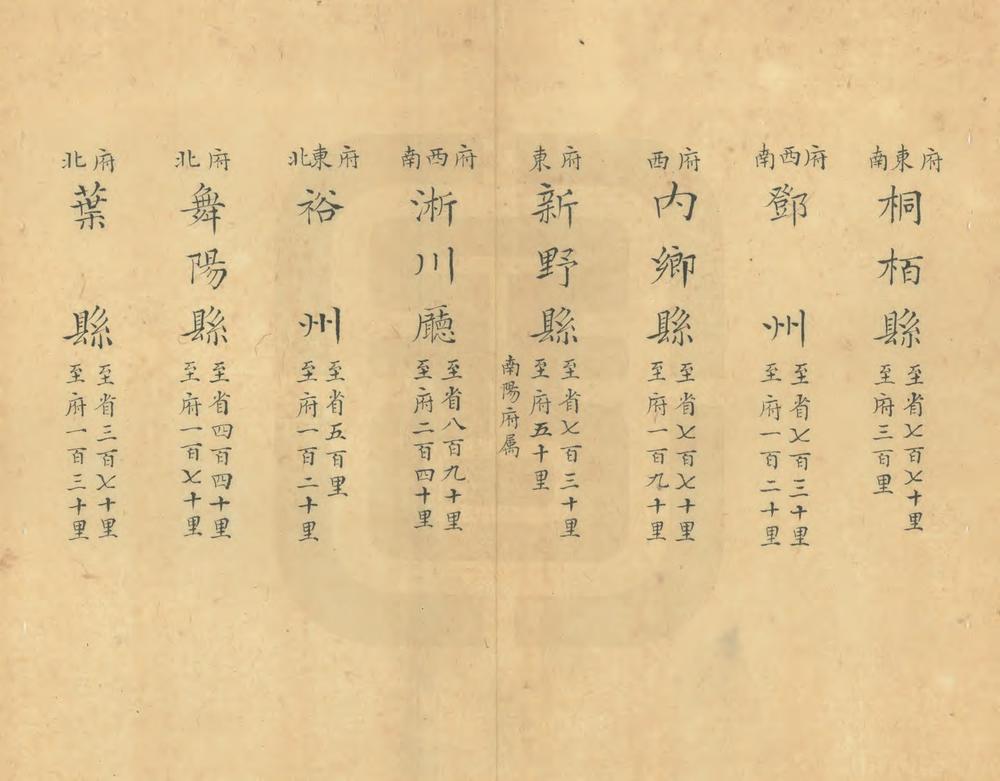 府東南
桐栢縣
至省七百七十里
至府三百里
府西南
鄧州
至省七百三十里
至府一百二十里
府西
內鄉縣
至省七百七十里
至府一百九十里
府東
新野縣
至省七百三十里
至府五十里
南陽府属
府西南
淅川廳
至省八百九十里
至府二百四十里
府東北
裕州
至省五百里
至府一百二十里
府北
舞陽縣
至省四百四十里
至府一百七十里
府北
葉縣
至省三百七十里
至府一百三十里